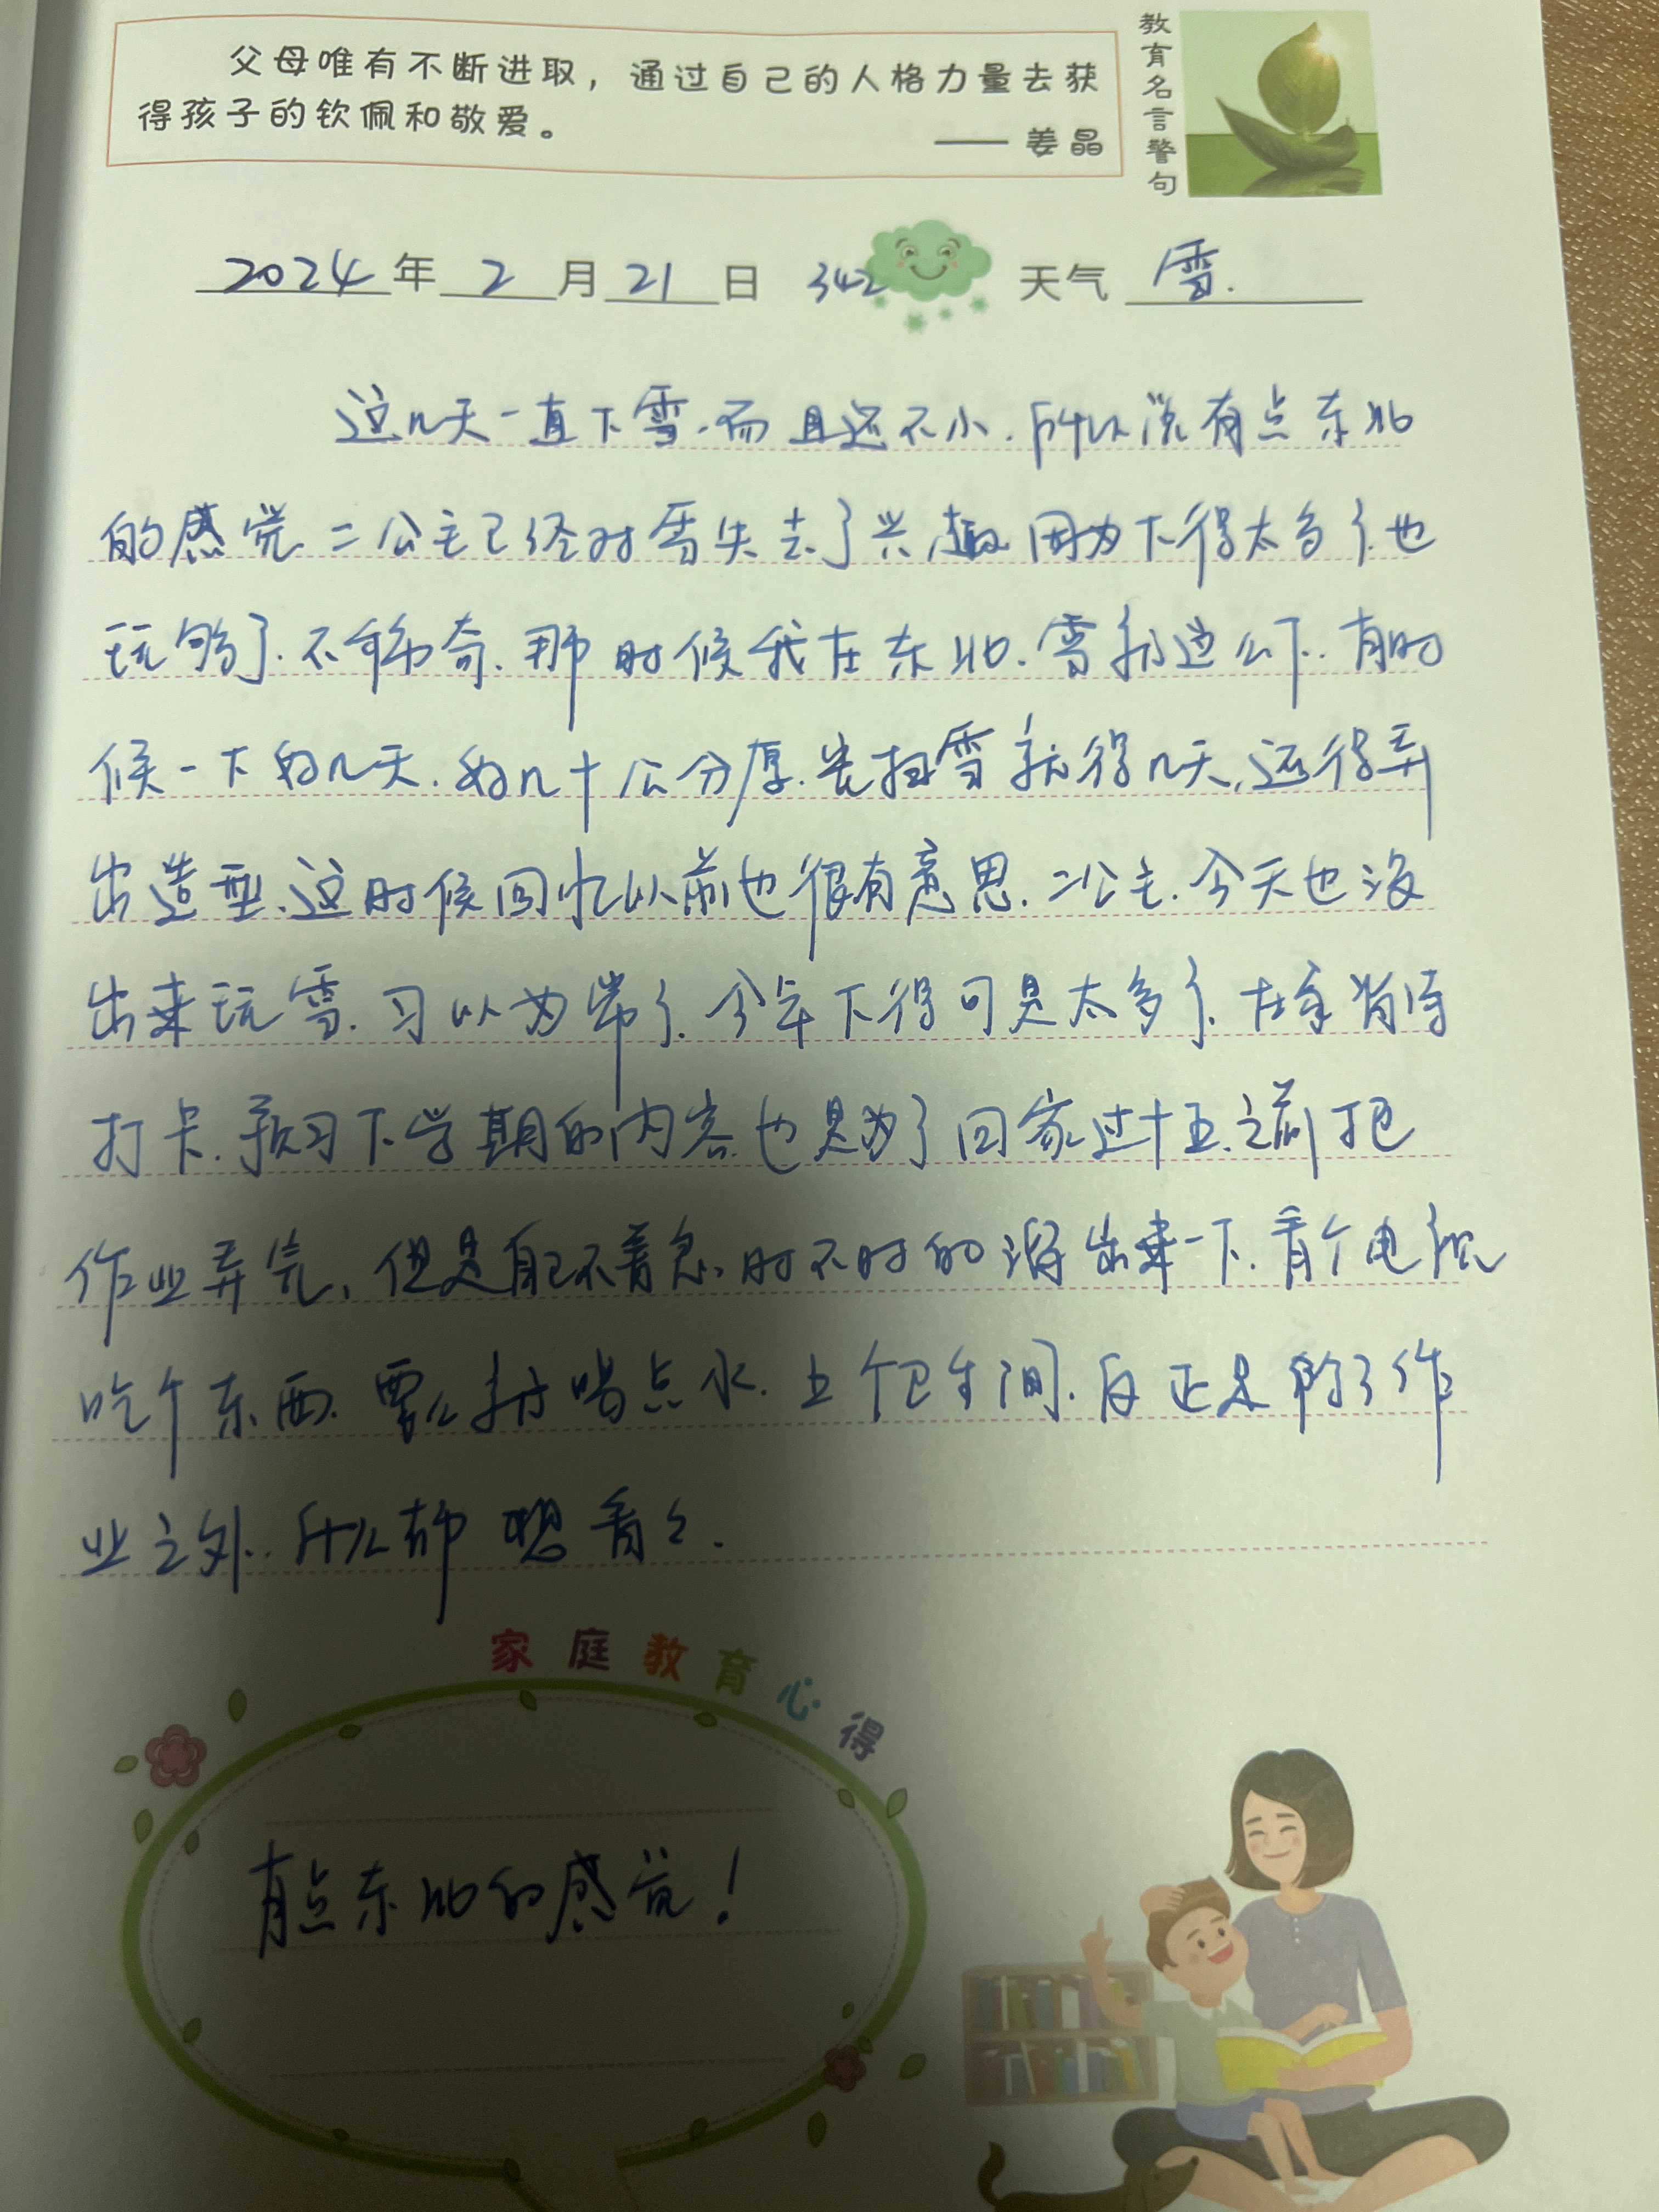 父母唯有不断进取，通过自己的人格力量去获
得孩子的钦佩和敬爱。
—— 姜晶
教育名言警句
2024年2月21日 342 天气 雪.
这几天一直下雪.而且还不小.所以说有点东北
的感觉.二公主已经对雪失去了兴趣.因为下得太多了.也
玩够了.不稀奇.那时候我在东北.雪就这么下..有时
候一下好几天.好几十公分厚.光扫雪就得几天,还得弄
出造型.这时候回忆以前也很有意思.二公主.今天也没
出来玩雪.习以为常了.今年下得可是太多了.在家
打卡.预习下学期的内容.也是为了回家过十五.之前把
作业弄完,但是自己不着急.时不时的得出来一下.看个电视
吃个东西.要么就喝点水.上个卫生间.反正是除了作
业之外.什么都想看看.
家庭教育心得
有点东北的感觉！